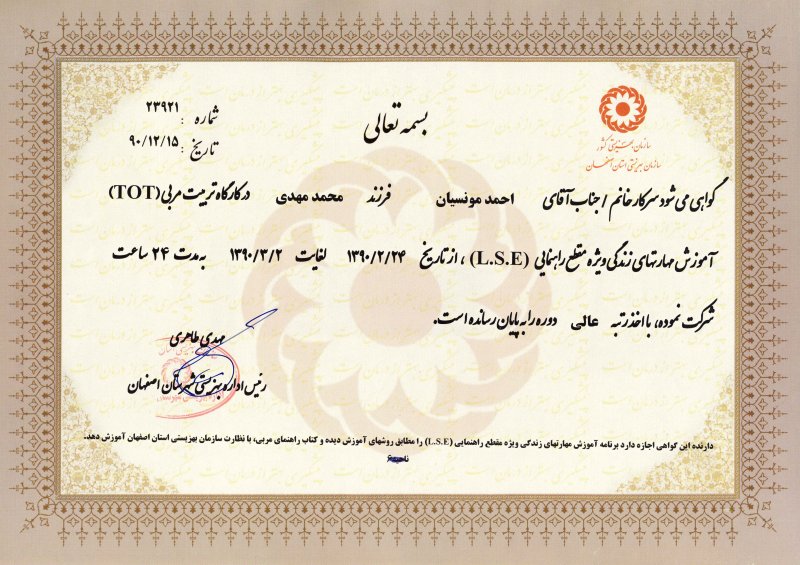 بسمه تعالی
شماره : ۲۳۹۲۱
تاریخ : ۹۰/۱۲/۱۵
سازمان بهزیستی کشور
سازمان بهزیستی استان اصفهان
گواهی می شود سرکار خانم / جناب آقای احمد مونسیان فرزند محمد مهدی در کارگاه تربیت مربی (TOT)
آموزش مهارتهای زندگی ویژه مقطع راهنمایی (L.S.E) ، از تاریخ ۱۳۹۰/۲/۲۴ لغایت ۱۳۹۰/۳/۲ به مدت ۲۴ ساعت
شرکت نموده، با اخذ رتبه عالی دوره را به پایان رسانده است.
مهدی طاهری
رئیس اداره بهزیستی شهرستان اصفهان
دارنده این گواهی اجازه دارد برنامه آموزش مهارتهای زندگی ویژه مقطع راهنمایی (L.S.E) را مطابق روشهای آموزش دیده و کتاب راهنمای مربی، با نظارت سازمان بهزیستی استان اصفهان آموزش دهد.